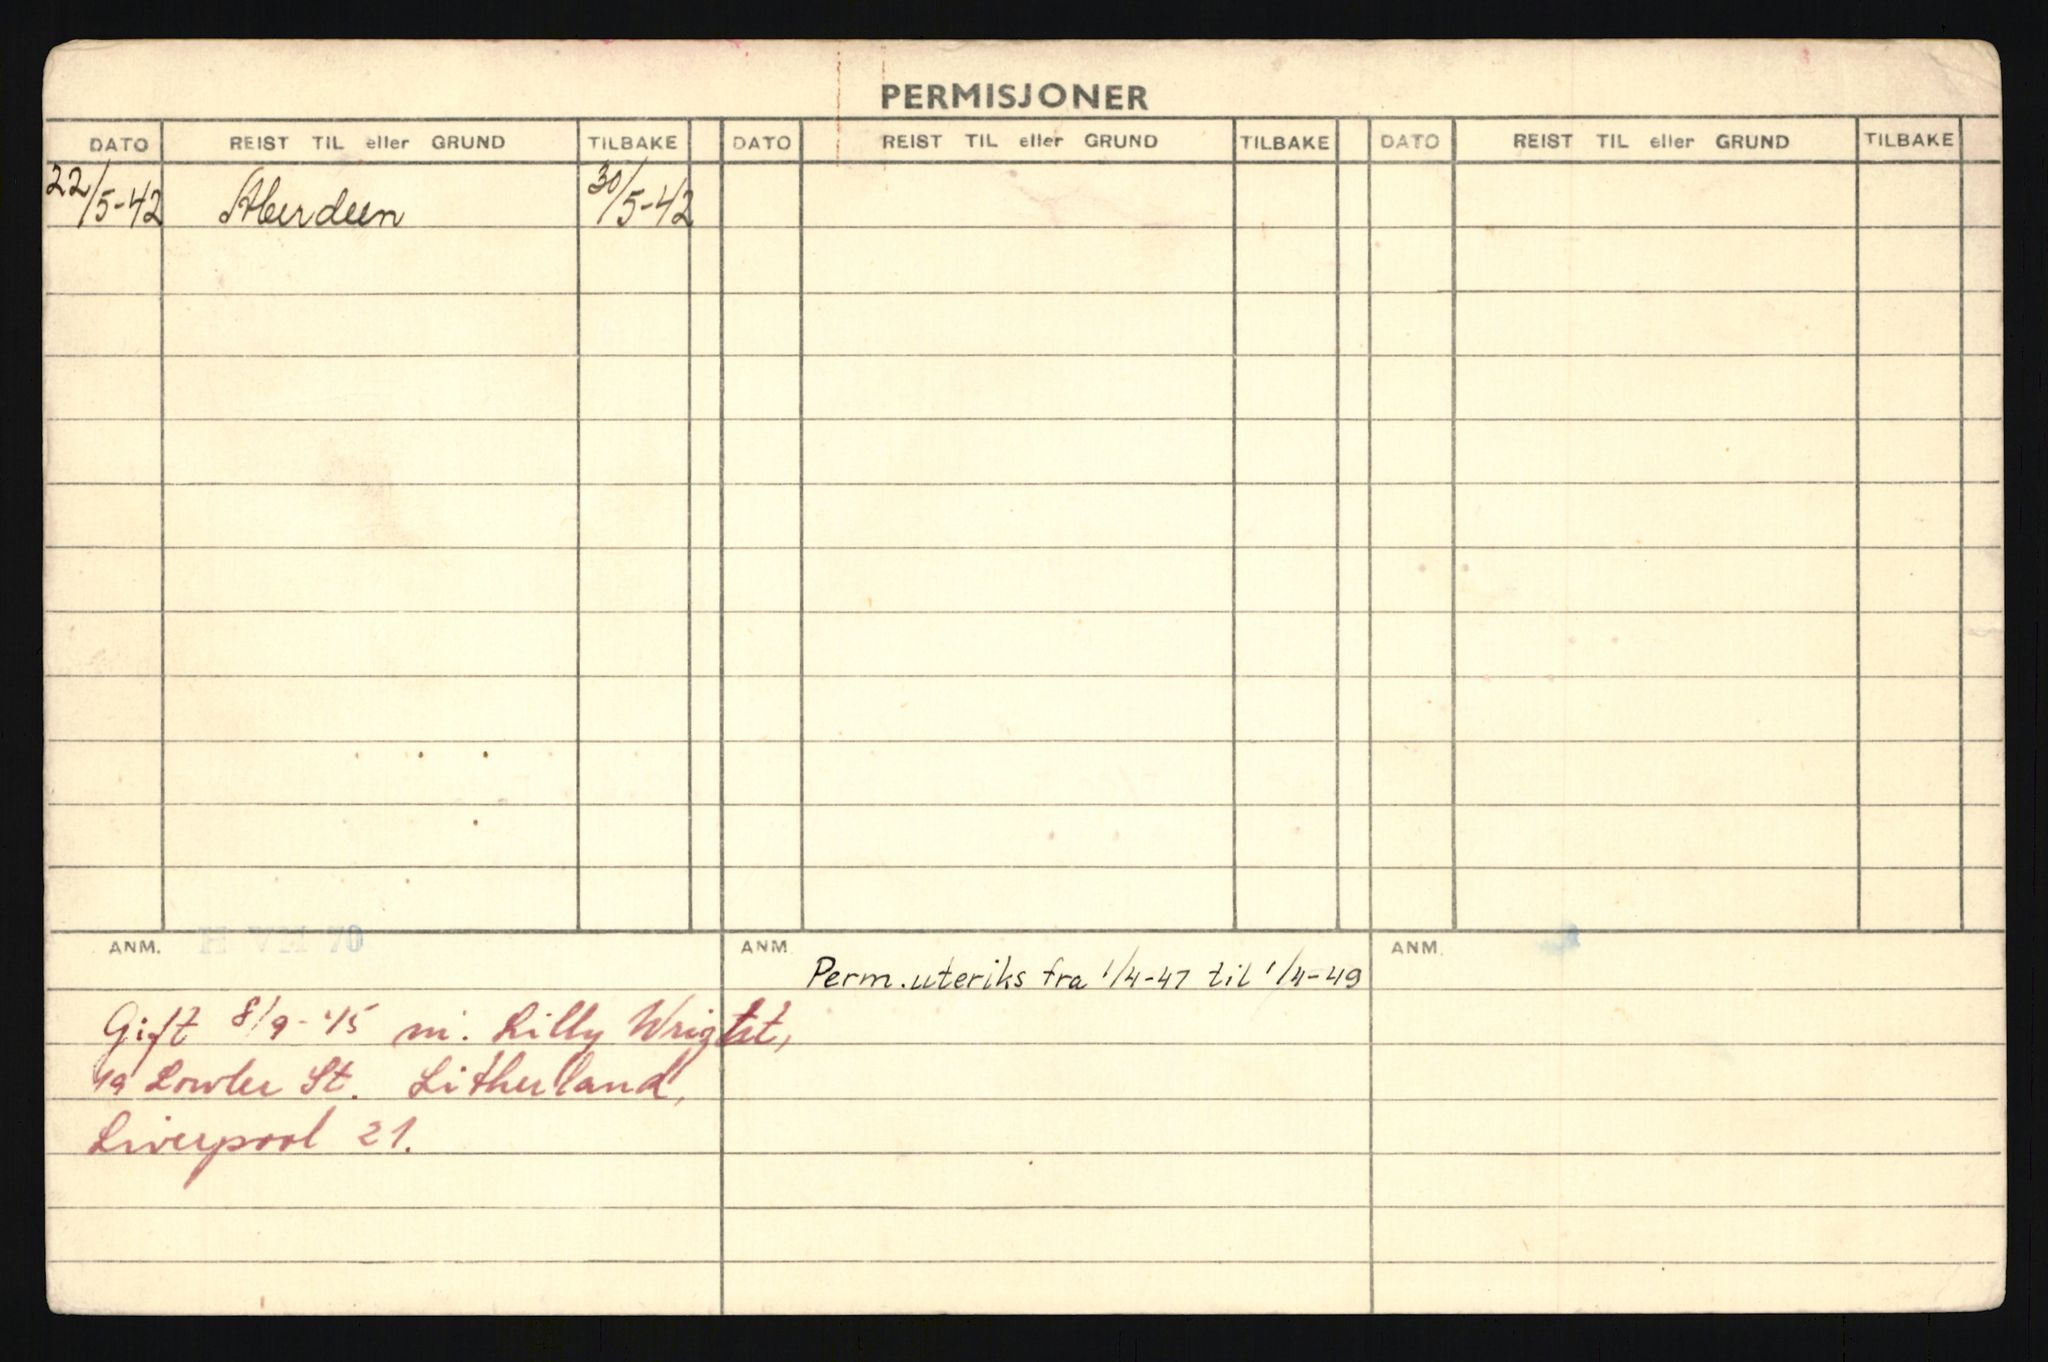 PERMISJONER
DATO REIST TIL eller GRUND TILBAKE DATO REIST TIL eller GRUND TILBAKE DATO REIST TIL eller GRUND TILBAKE
22/5-42 Aberdeen 30/5-42
ANM. H VM 70 ANM ANM.
Perm. uteriks fra 1/4-47 til 1/4-49
Gift 8/9-45 m. Lilly Wright,
St. Litherland,
Liverpool 21.